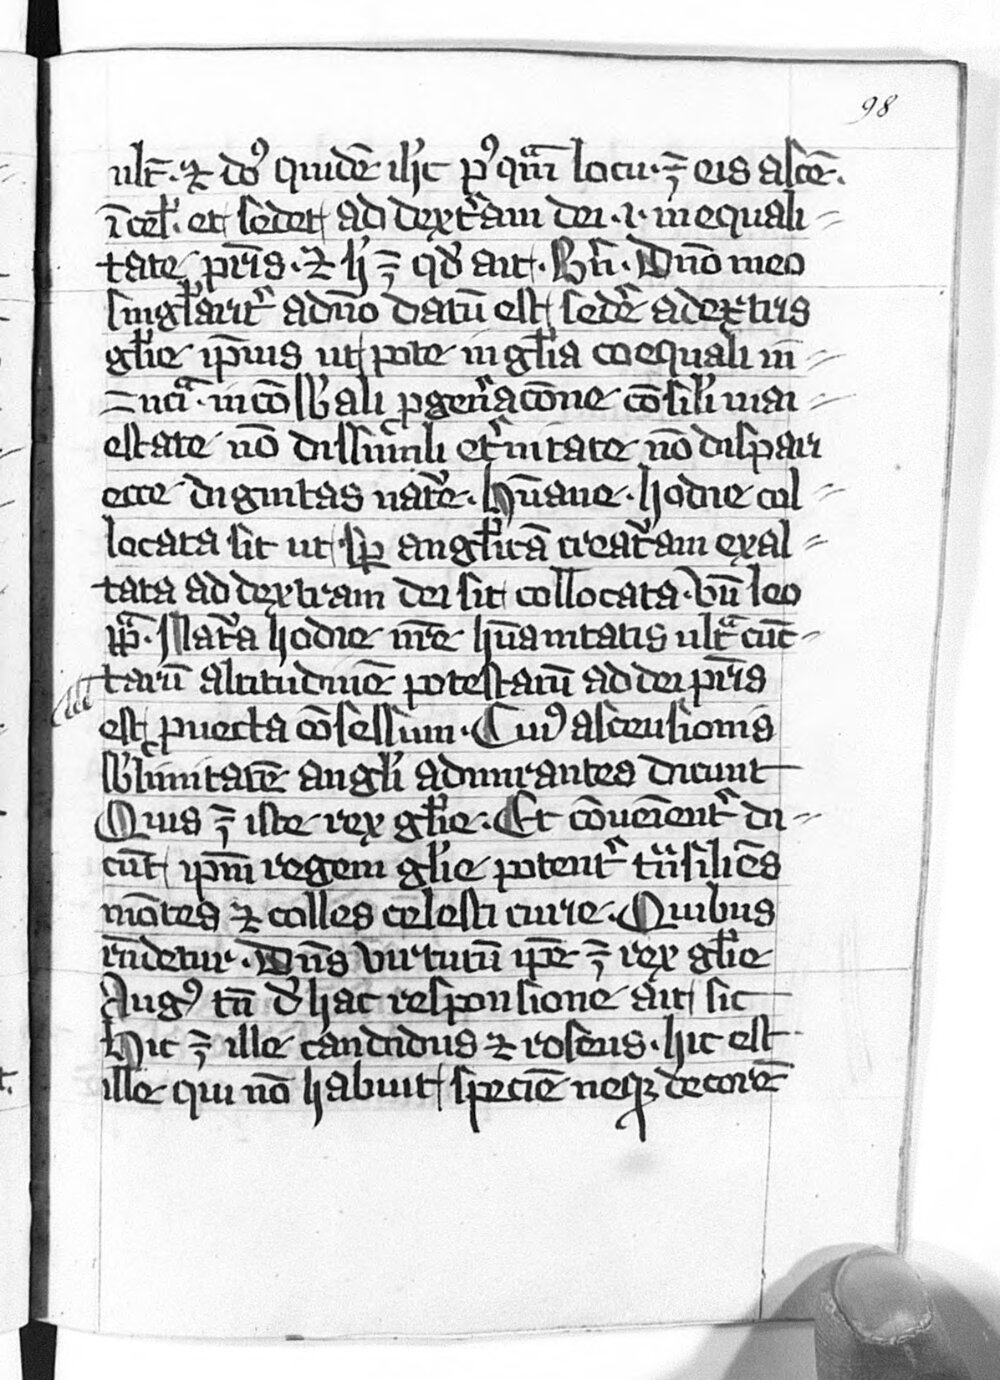 98
ult̄. ⁊ do⁹ quidē il'ic p⁹ qᵃm locū. ē eis ascē.
ī cel'. et sedet ad dext̓am dei .i. in equali
tate pr̄is. ⁊ h' ē qd' ait. Bn̄. Dn̄o meo
singl'arit̓ a dn̄o datū est sed̓e a dextris
gl'ie ip̄ius ut pote in gl'ia coequali in
eēncia. in cōsb'ali ꝑgen̓acōne cōsil'i mai
estate nō dissimili et̓nitate nō dispari
ecce dignitas nat̓e. hūane. hodie col
locata sit ut sp̄ angl'icā creat̓am exal
tata ad dextram dei sit collocata. Vn̄ leo
pp̄ᵃ. Nat̓a hodie nr̄e hūanitatis ultᵃ cūc
tarū altitudinē potestatū ad dei pr̄is
est ꝓuecta cōsessum. Cui⁹ ascensionis
sb'limitatē angl'i admirantes dicunt
Quis ē iste rex gl'ie. Et cōueīent̓ di
cūt ip̄m regem gl'ie potent̓ tn̄siliēs
mōtes ⁊ colles cēlesti curie. Quibus
rn̄detur. Dn̄s virtutū ip̄e ē rex gl'ie
Aug⁹ tn̄ d' hac responsione ait sic
Hic ē ille candidus ⁊ roseus. hic est
ille qui nō habuit speciē neqꝫ decorē